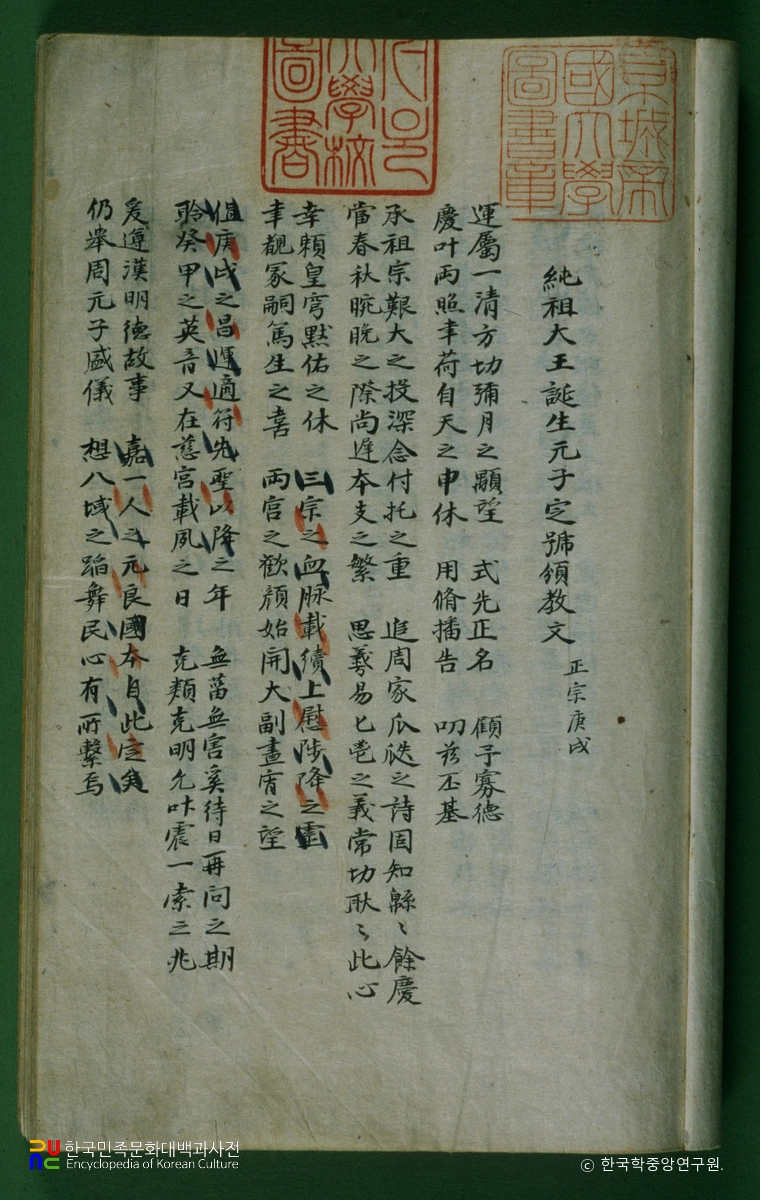 京城帝
國大學
圖書章
大學校
圖書
純祖大王誕生元子定號頒教文 正宗庚戌
運屬一清方切彌月之顒望 式先正名 顧予寡德
慶叶兩照聿荷自天之申休 用脩播告 叨玆丕基
承祖宗艱大之投深念付托之重 追周家瓜瓞之詩固知緜〻餘慶
當春秋晼晩之際尚遲本支之繁 思羲易匕鬯之義常切耿〻此心
幸頼皇穹默佑之休 三宗之血脉載續上慰陟降之靈
聿覩冢嗣篤生之喜 兩宮之歡顔始開大副晝宵之望
值庚戌之昌運適符先聖以降之年 無菑無害奚待日再问之期
聆癸甲之英音又在慈宮載夙之日 克類克明允叶震一索之兆
爰遵漢明德故事 嘉一人之元良國本自此定矣
仍舉周元子盛儀 想八域之蹈舞民心有所繫焉
한국민족문화대백과사전
Encyclopedia of Korean Culture
ⓒ 한국학중앙연구원.